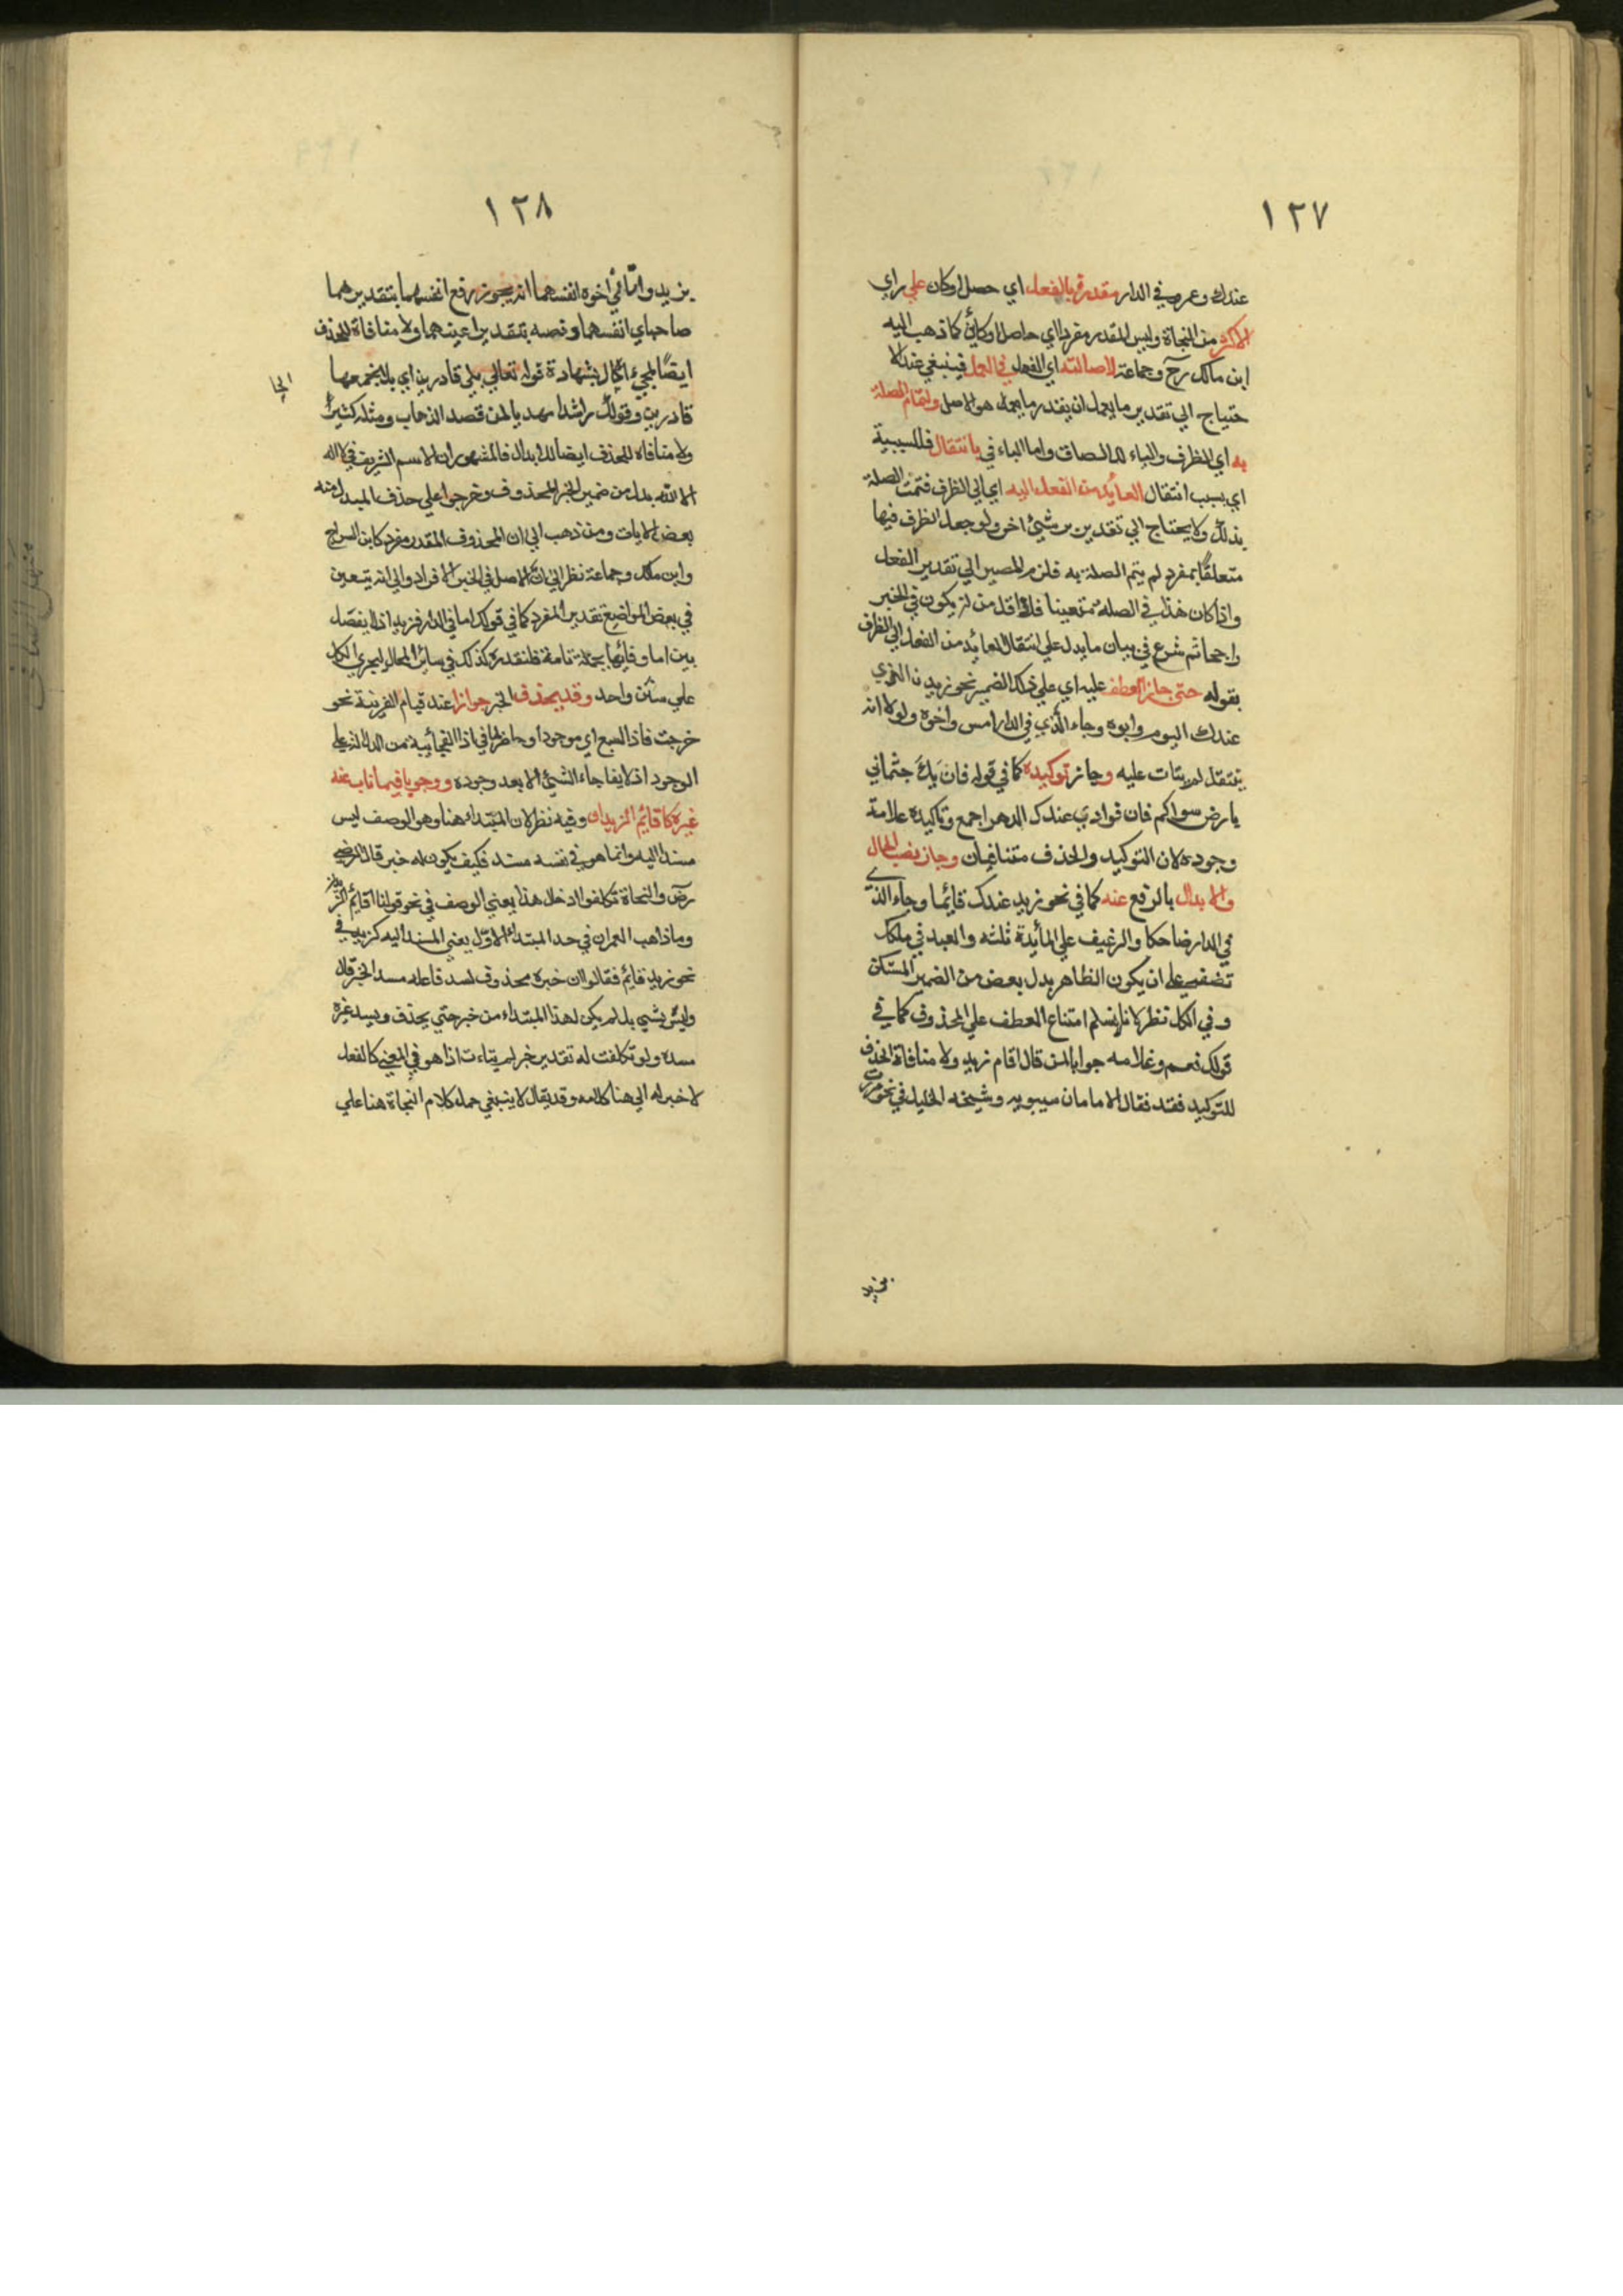 ١٢٧
عندك وعمرو في الدار مقدرة بالفعل اي حصل او كان علي راي
الاكثر من النحاة وليس المقدر مفردا اي حاصل او كائن كما ذهب اليه
ابن مالك رح وجماعة لاصالته اي الفعل في العمل فينبغي عند الا
حتياج الي تقدير ما يعمل ان يقدر ما يعمل هو الاصل ولتمام الصلة
به اي الظرف والباء للالصاق واما الباء في بانتقال فللسببية
اي بسبب انتقال العائد من الفعل اليه اي الي الظرف فتمت الصلة
بذلك ولا يحتاج الي تقدير شيئ اخر ولو جعل الظرف فيها
متعلقا بمفرد لم يتم الصلة به فلزم المصير الي تقدير الفعل
واذا كان هذا في الصلة متعينا فلا اقل من ان يكون في الخبر
راجحا ثم شرع في بيان ما يدل علي انتقال العائد من الفعل الي الظرف
بقوله حتي جاز العطف عليه اي علي ذلك الضمير نحو زيد الذي
عندك اليوم وابوه وجاء الذي في الدار امس واخوه ولولا انه
ينتقل لم يتات عليه وجاز توكيده كما في قوله فان يك جثماني
بارض سواكم فان فوادي عندك الدهر اجمع وتاكيده علامة
وجوده لان التوكيد والحذف متنافيان وجاز نصب الحال
والابدال بالرفع عنه كما في نحو زيد عندك قائما وجاء الذي
في الدار ضاحكا والرغيف علي المائدة ثلثه والعبد في ملكك
نصفه علي ان يكون الظاهر بدل بعض من الضمير المستكن
وفي الكل نظر لانا لا نسلم امتناع العطف علي المحذوف كما في
قولك نعم وغلامه جوابا لمن قال اقام زيد ولا منافاة الحذف
للتوكيد فقد قال الامامان سيبويه وشيخه الخليل في نحو مررت
بزيد
١٢٨
بزيد واتاني اخوه انفسهما انه يجوز رفع انفسهما بتقدير هما
صاحباي انفسهما ونصبه بتقدير اعنيهما ولا منافاة للحذف
ايضا لمجيئ الحال بشهادة قوله تعالي بلي قادرين اي بلي نجمعها
قادرين وقولك راشدا مهديا لمن قصد الذهاب ومثله كثير
ولا منافاة للحذف ايضا للابدال فالمشهور ان الاسم الشريف في لا اله
الا الله بدل من ضمير الخبر المحذوف وخرجوا علي حذف المبدل منه
بعض الايات ومن ذهب الي ان المحذوف المقدر مفرد كابن السراج
وابن مالك وجماعة نظر الي ان الاصل في الخبر الافراد والي انه يتعين
في بعض المواضع تقدير المفرد كما في قولك اما في الدار فزيد اذ لا يفصل
بين اما وفائها بجملة تامة فلنقدره كذلك في سائر المحال ليجري الكل
علي سنن واحد وقد يحذف الخبر جوازا عند قيام القرينة نحو
خرجت فاذا السبع اي موجود او حاضر لما في اذا الفجائية من الدلالة علي
الوجود اذ لا يفاجاء الشيئ الا بعد وجوده ووجوبا فيما ناب عنه
غيره كاقائم الزيدان وفيه نظر لان المبتداء هنا وهو الوصف ليس
مسندا اليه وانما هو في نفسه مسند فكيف يكون له خبر قال الرضي
رض والنحاة تكلفوا ادخال هذا يعني الوصف في نحو قولنا اقائم الزيدان
وماذاهب العمران في حد المبتداء الاول يعني المسند اليه كزيد في
نحو زيد قائم فقالوا ان خبره محذوف لسد فاعله مسد الخبر قال
وليس بشيئ بل لم يكن لهذا المبتداء من خبر حتي يحذف ويسد غيره
مسده ولو تكلفت له تقدير خبر لم يتاءت اذ هو في المعني كالفعل
لا خبر له الي هنا كلامه وقد يقال لا ينبغي حمل كلام النحاة هنا علي